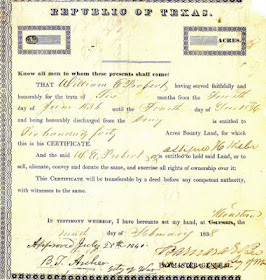 REPUBLIC OF TEXAS.
ACRES
Know all men to whom these presents shall come:
THAT William C. having served faithfully and
honorably for the term of months from the
day of June 1836 until the day of Dec 1836
and being honorably discharged from the Army is entitled to
Six hundred forty Acres Bounty Land, for which
this is his CERTIFICATE.
And the said W. C. is entitled to hold said Land, or to
sell, alienate, convey and donate the same, and exercise all rights of ownership over it:
This CERTIFICATE will be transferable by deed before any competent authority,
with witnesses to the same.
IN TESTIMONY WHEREOF, I have hereunto set my hand, at Houston
day of February 1838
Approved July 28th 1840
B. T. Archer